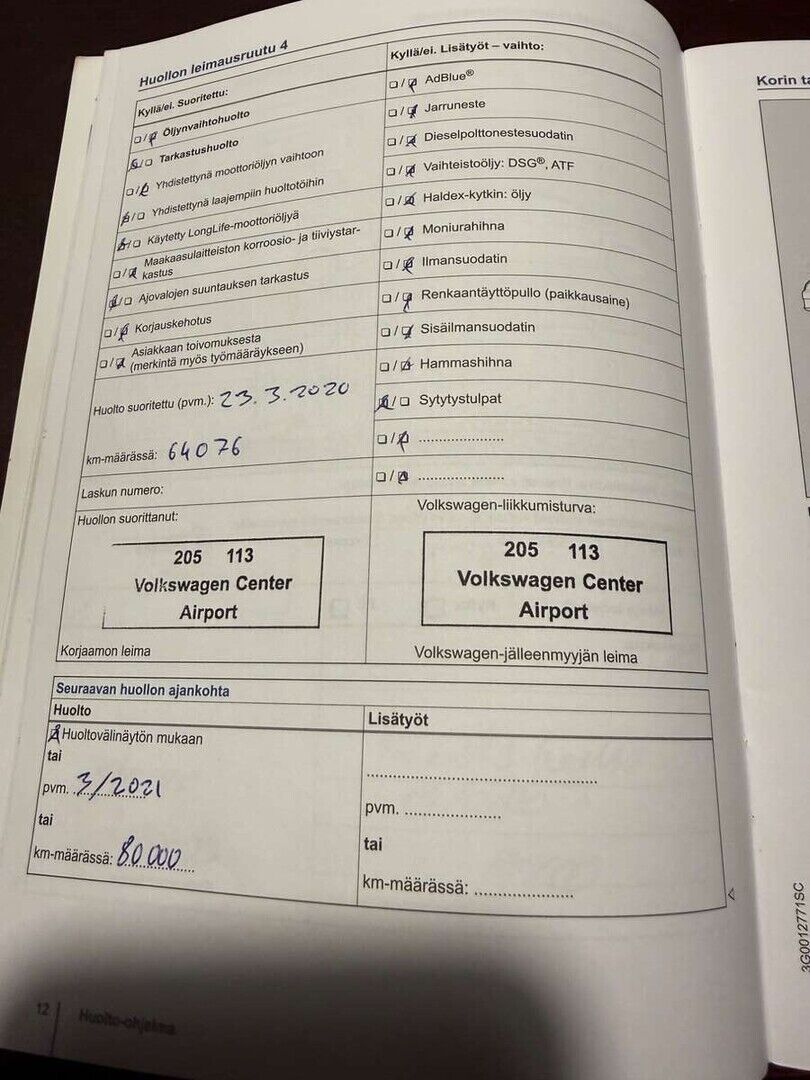 Huollon leimausruutu 4
Kyllä/ei. Suoritettu:
Öljynvaihtohuolto
Tarkastushuolto
Yhdistettynä moottoriöljyn vaihtoon
Yhdistettynä laajempiin huoltotöihin
Käytetty LongLife-moottoriöljyä
Maakaasulaitteiston korroosio- ja tiiviystar-
kastus
Ajovalojen suuntauksen tarkastus
Korjauskehotus
Asiakkaan toivomuksesta
(merkintä myös työmääräykseen)
Huolto suoritettu (pvm.): 23.3.2020
km-määrässä: 64076
Laskun numero:
Huollon suorittanut:
205 113
Volkswagen Center
Airport
Korjaamon leima
Kyllä/ei. Lisätyöt – vaihto:
AdBlue®
Jarruneste
Dieselpolttonestesuodatin
Vaihteistoöljy: DSG®, ATF
Haldex-kytkin: öljy
Moniurahihna
Ilmansuodatin
Renkaantäyttöpullo (paikkausaine)
Sisäilmansuodatin
Hammashihna
Sytytystulpat
Volkswagen-liikkumisturva:
205 113
Volkswagen Center
Airport
Volkswagen-jälleenmyyjän leima
Seuraavan huollon ajankohta
Huolto
Huoltovälinäytön mukaan
tai
pvm. 3/2021
tai
km-määrässä: 80000
Lisätyöt
pvm.
tai
km-määrässä:
12 Huolto-ohjelma
Korin ta
3G0012771SC